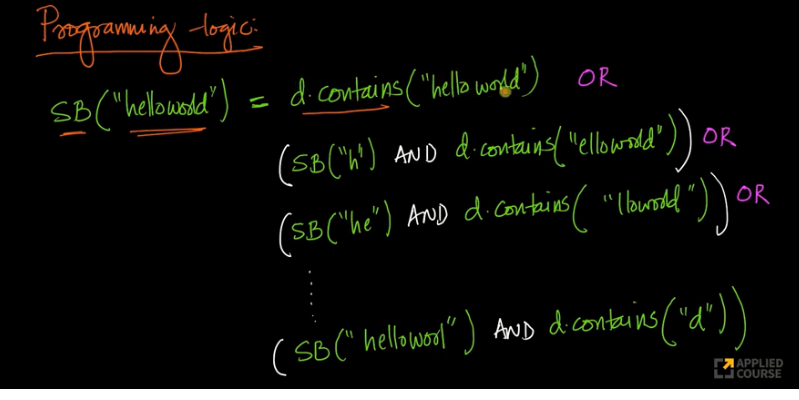 Programming logic:
SB("helloworld") = d.contains("helloworld") OR
(SB("h") AND d.contains("elloworld")) OR
(SB("he") AND d.contains("lloworld")) OR
(SB("helloworl") AND d.contains("d"))
APPLIED
COURSE